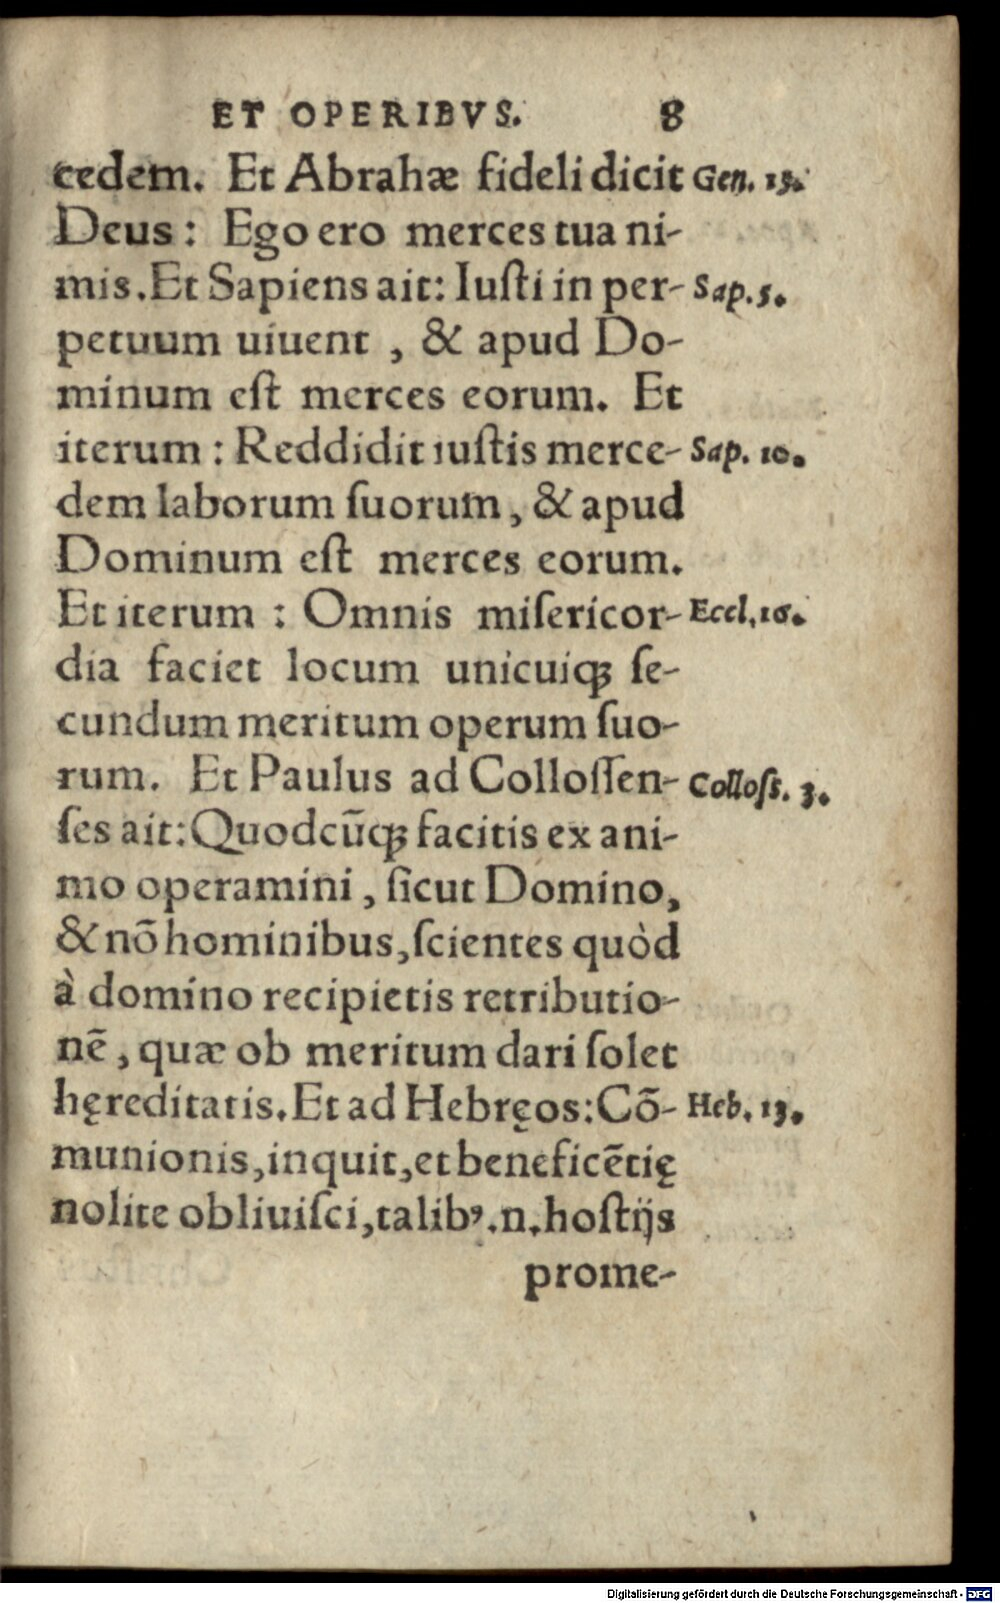 ET OPERIBVS. 8
cedem. Et Abrahæ fideli dicit Gen. 15.
Deus: Ego ero merces tua ni-
mis. Et Sapiens ait: Iuſti in per- Sap. 5.
petuum uiuent, & apud Do-
minum eſt merces eorum. Et
iterum: Reddidit iuſtis merce- Sap. 10.
dem laborum ſuorum, & apud
Dominum eſt merces eorum.
Et iterum: Omnis miſericor- Eccl. 16.
dia faciet locum unicuiqꝫ ſe-
cundum meritum operum ſuo-
rum. Et Paulus ad Colloſſen- Colloſs. 3.
ſes ait: Quodcūqꝫ facitis ex ani-
mo operamini, ſicut Domino,
& nō hominibus, ſcientes quòd
à domino recipietis retributio-
nē, quæ ob meritum dari ſolet
hęreditatis. Et ad Hebręos: Cō- Heb. 13.
munionis, inquit, et beneficētię
nolite obliuiſci, talibꝰ .n. hoſtijs
prome-
Digitalisierung gefördert durch die Deutsche Forschungsgemeinschaft - DFG